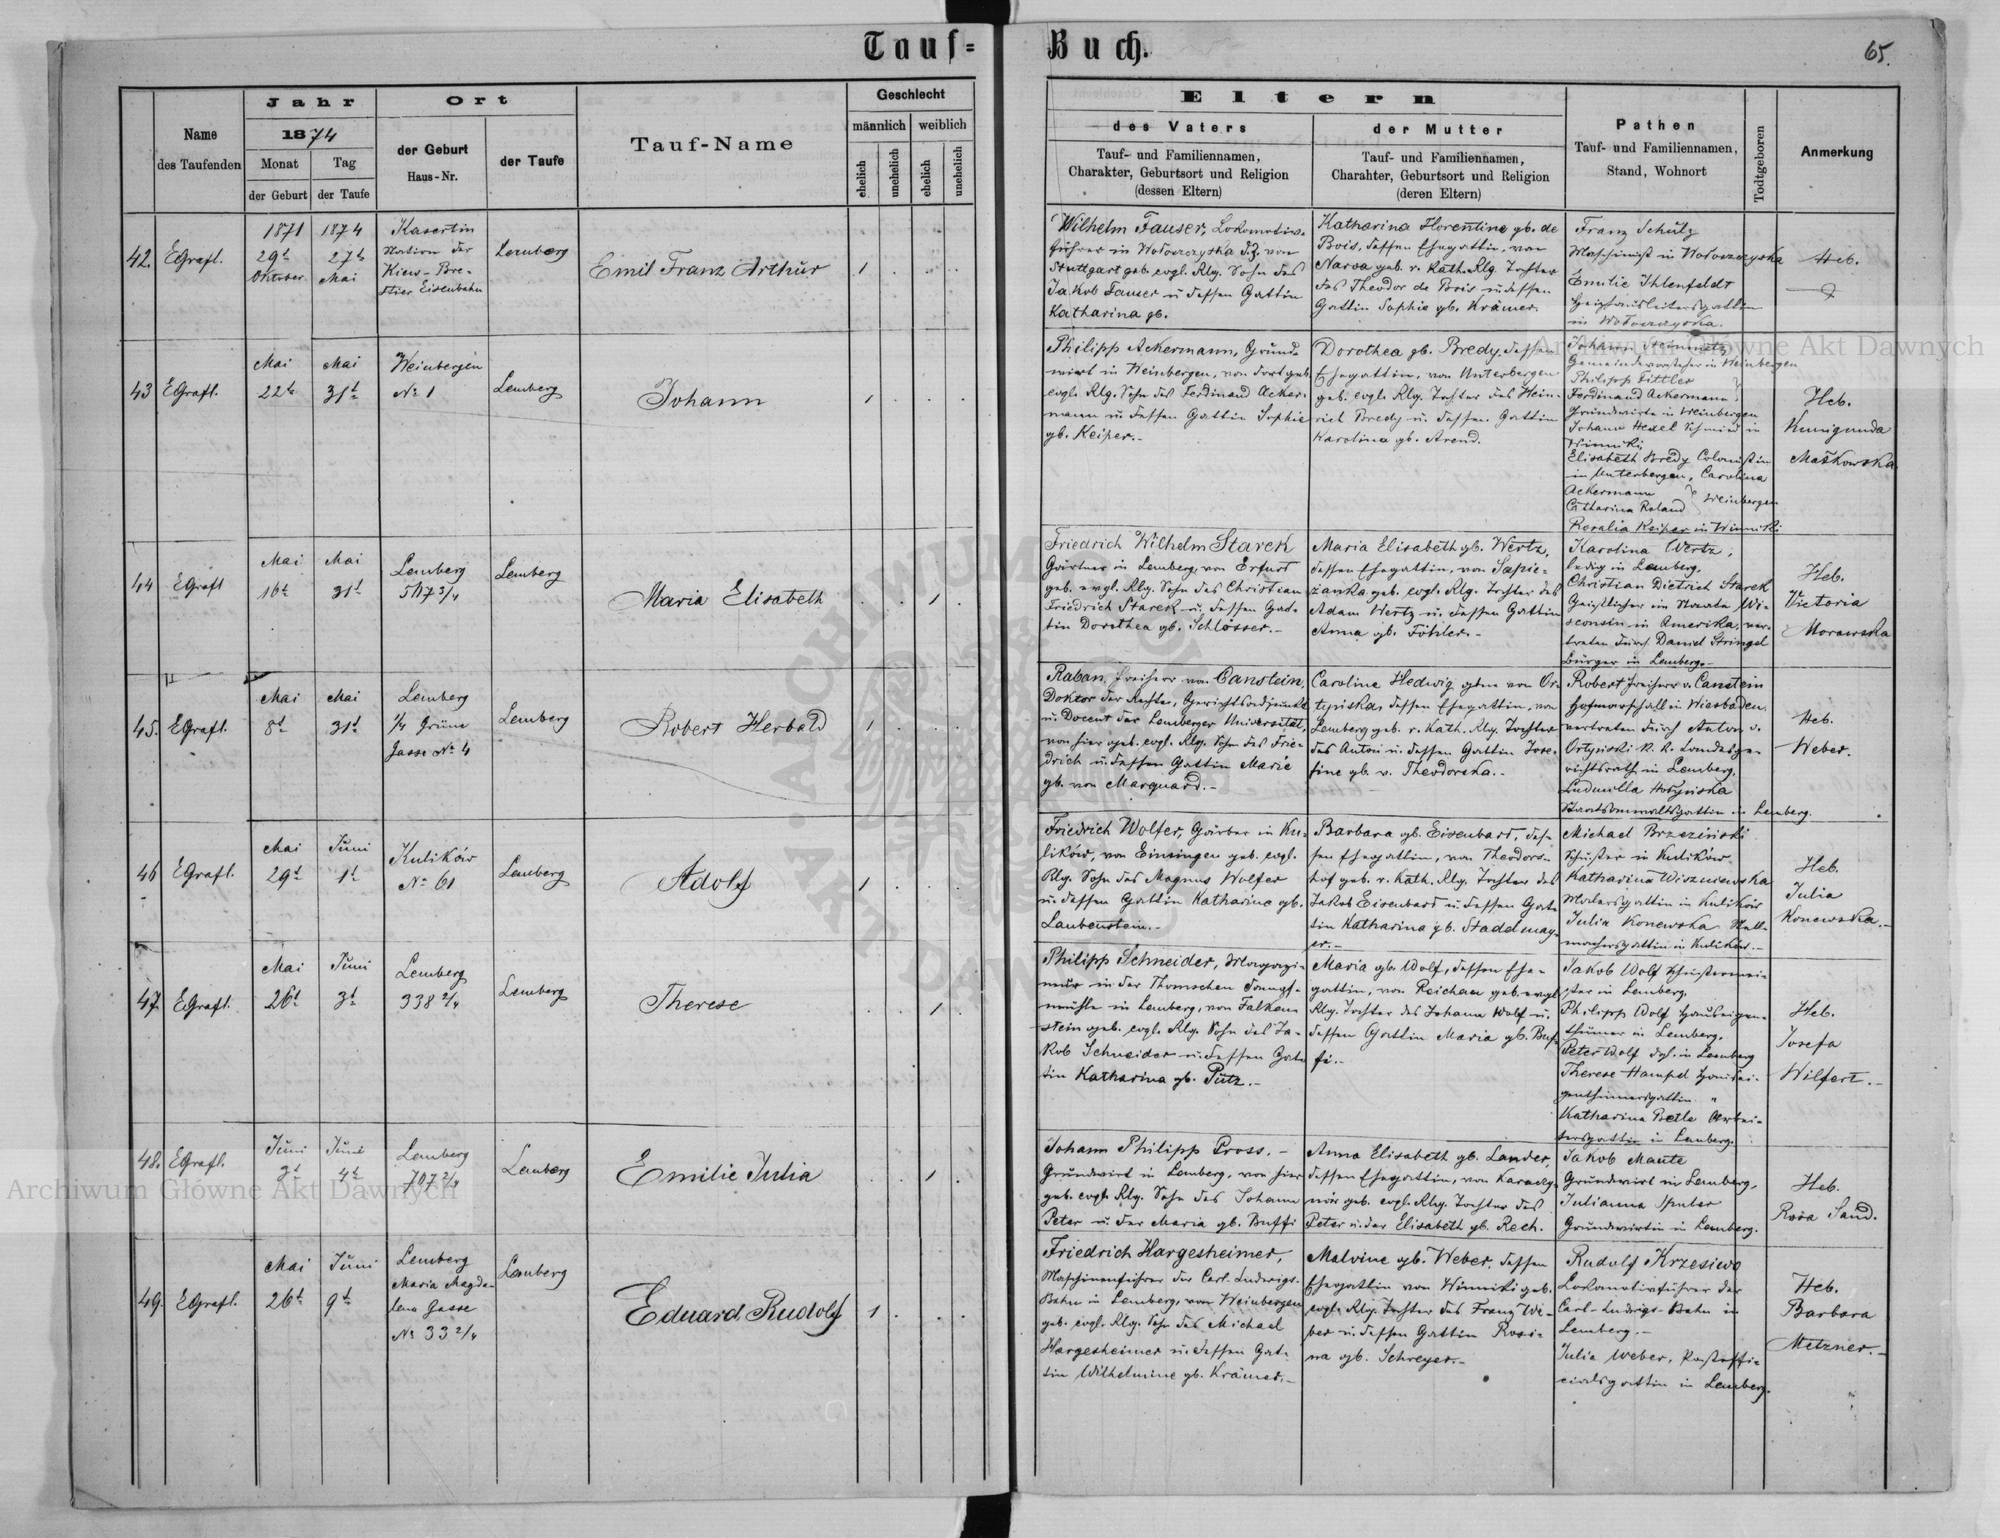 Tauf=
Buch.
65.
Name
des Taufenden
Jahr
1874
Monat
der Geburt
Tag
der Taufe
Ort
der Geburt
Haus-Nr.
der Taufe
Tauf-Name
Geschlecht
männlich
weiblich
ehelich
unehelich
ehelich
unehelich
Eltern
des Vaters
Tauf- und Familiennamen,
Charakter, Geburtsort und Religion
(dessen Eltern)
der Mutter
Tauf- und Familiennamen,
Charahter, Geburtsort und Religion
(deren Eltern)
Pathen
Tauf- und Familiennamen,
Stand, Wohnort
Todtgeboren
Anmerkung
42.
EGrafl.
1871
29t
Oktober
1874
27t
Mai
Station der
Kiew-Bre-
stier Eisenbahn
Lemberg
Emil Franz Arthur
1
Wilhelm Fauser, Lokomotiv-
führer in Wołoczyska z.Z. von
Stuttgart geb. evgl. Rlg. Sohn des
Jakob Fauser u dessen Gattin
Katharina gb.
Katharina Florentine gb. de
Bois, dessen Ehegattin, von
Narva geb. r. Kath. Rlg. Tochter
des Theodor de Bois u dessen
Gattin Sophie gb. Krämer.
Franz Schütz
Maschinist in Wołoczyska
Emilie Ihlenfeldt
in Wołoczyska.
Heb.
43
EGrafl.
Mai
22t
Mai
31t
Weinbergen
No 1
Lemberg
Johann
1
Philipp Ackermann, Grund-
wirt in Weinbergen, von dort geb.
evgl. Rlg. Sohn des Ferdinand Acker-
mann u dessen Gattin Sophie
gb. Keiper.-
Dorothea gb. Bredy, dessen
Ehegattin, von Unterbergen
geb. evgl. Rlg. Tochter des Hein-
rich Bredy u. dessen Gattin
Karolina gb. Arend.
Johann Steinmetz
Gemeindevorsteher in Weinbergen
Philipp Fittler
Ferdinand Ackermann
Grundwirte in Weinbergen
Johann Hexel Schmied in
Winniki
Elisabeth Bredy Colonistin
in Unterbergen, Carolina
Ackermann
Catharina Roland } Weinbergen
Rosalia Keiper in Winniki
Heb.
Kunigunda
Maśkowska
44
EGrafl
Mai
16t
Mai
31t
Lemberg
517 3/4
Lemberg
Maria Elisabeth
1
Friedrich Wilhelm Starck
Gärtner in Lemberg, von Erfurt
geb. evgl. Rlg. Sohn des Christian
Friedrich Starck u. dessen Gat-
tin Dorothea gb. Schlösser.-
Maria Elisabeth gb. Wertz,
dessen Ehegattin, von Sapie-
żanka geb. evgl. Rlg. Tochter des
Adam Wertz u. dessen Gattin
Anna gb. Föhler.-
Karolina Wertz,
ledig in Lemberg.
Christian Dietrich Starck
Geistlicher im Staate Wi-
sconsin in Amerika, ver-
treten durch Daniel Stringel
Bürger in Lemberg.-
Heb.
Victoria
Morawska
45.
EGrafl.
Mai
8t
Mai
31t
Lemberg
1/4 Grüne
Gasse No 4
Lemberg
Robert Herbald
1
Raban, Freiherr von Canstein,
Doktor der Rechte, Gerichtsadjunkt
u. Docent der Lemberger Universität,
von hier geb. evgl. Rlg. Sohn des Frie-
drich u. dessen Gattin Marie
gb. von Marquard.-
Caroline Hedwig gbne von Or-
tyńska, dessen Ehegattin, von
Lemberg geb. r. Kath. Rlg. Tochter
des Anton u. dessen Gattin Jose-
fine gb. v. Theodorska.-
Robert Freiherr v. Canstein
Hofmarschall in Wiesbaden,
vertreten durch Anton v.
Ortyński K. K. Landesge-
richtsrath in Lemberg.
Staatsanwaltsgattin in Lemberg.
Heb.
Weber.
46
EGrafl.
Mai
29t
Juni
1t
Kulików
No 61
Lemberg
Adolf
1
Friedrich Wolfer, Gärber in Ku-
lików, von Einsingen geb. evgl.
Rlg. Sohn des Magnus Wolfer
u. dessen Gattin Katharina gb.
Laubenstein.-
Barbara gb. Eisenbart, des-
sen Ehegattin, von Theodors-
hof geb. r. Kath. Rlg. Tochter des
Jakob Eisenbart u dessen Gat-
tin Katharina gb. Stadelmay-
er.-
Michael Brzeziński
Schuster in Kulików
Katharina Wiszniewska
Malersgattin in Kulików
Julia Konewska
in Kulików.-
Heb.
Julia
Konewska.-
47.
EGrafl.
Mai
26t
Juni
3t
Lemberg
338 2/4
Lemberg
Therese
1
Philipp Schneider, Magazi-
neur in der Thomschen Dampf-
mühle in Lemberg, von Falken-
stein geb. evgl. Rlg. Sohn des Ja-
kob Schneider u. dessen Gat-
tin Katharina gb. Pütz.-
Maria gb. Wolf, dessen Ehe-
gattin, von Reichau geb. evgl
Rlg. Tochter des Johann Wolf u.
dessen Gattin Maria gb. Buf-
fi.-
Jakob Wolf Schustermei-
ster in Lemberg.
Philipp Wolf Hauseigen-
thümer in Lemberg.
Peter Wolf dgl. in Lemberg
Therese Hampel Hausei-
genthümersgattin "
Katharina
in Lemberg.
Heb.
Josefa
Wilfert.-
48.
EGrafl.
Juni
Juni
4t
Lemberg
707 2/4
Lemberg
Emilie Julia
1
Johann Philipp Pross.-
Grundwirt in Lemberg, von hier
geb. evgl. Rlg. Sohn des Johann
Peter u. der Maria gb. Buffi
Anna Elisabeth gb. Lander,
dessen Ehegattin, von Karaczy-
nów geb. evgl. Rlg. Tochter des
Peter u. der Elisabeth gb. Rech.
Jakob Maute
Grundwirt in Lemberg,
Julianna
Grundwirtin in Lemberg.
Heb.
Rosa Sand.
49.
EGrafl.
Mai
26t
Juni
9t
Lemberg
Maria Magda-
lena Gasse
No 33 2/4
Lemberg
Eduard Rudolf
1
Friedrich Hargesheimer,
Maschinenführer der Carl-Ludwigs-
Bahn in Lemberg, von Weinbergen
geb. evgl. Rlg. Sohn des Michael
Hargesheimer u. dessen Gat-
tin Wilhelmine gb. Krämer.-
Malvine gb. Weber, dessen
Ehegattin von Winniki geb.
evgl. Rlg. Tochter des Franz We-
ber u. dessen Gattin Rosi-
na gb. Schreyer.-
Rudolf Krzesiwo
Lokomotivführer der
Carl-Ludwigs-Bahn in
Lemberg.-
Julie Weber, Postoffi-
cialsgattin in Lemberg.
Heb.
Barbara
Metzner.-
Archiwum Główne Akt Dawnych
Archiwum Główne Akt Dawnych